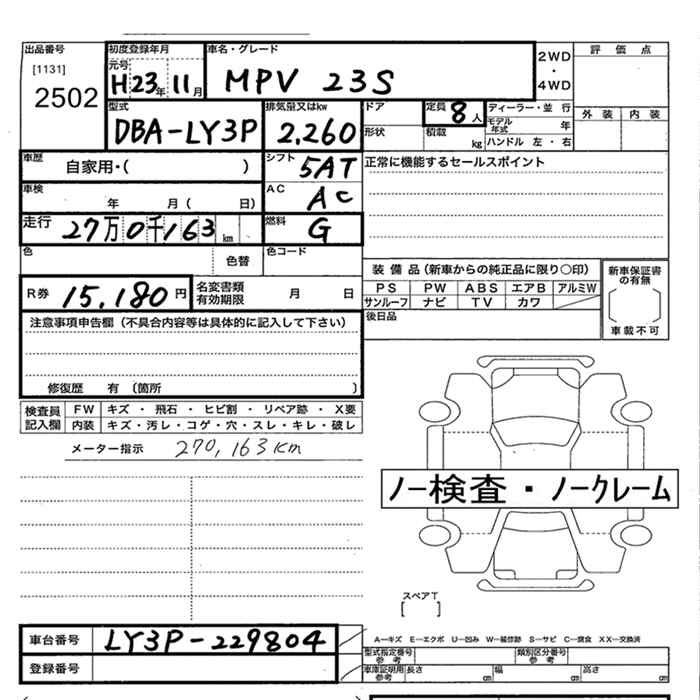 出品番号 初度登録年月 車名・グレード 評価点
[1131] 元号 2WD
2502 H23年11月 MPV 23S ・
4WD
型式 排気量又はkw ドア 定員 8人 ディーラー・並 行 外装 内装
DBA-LY3P 2,260 形状 積載 kg モデル年式 年
ハンドル 左・右
車歴 自家用・( ) シフト 5AT 正常に機能するセールスポイント
車検 年 月( 日) AC AC
走行 27万0千163km 燃料 G
色 色替 色コード
装備品(新車からの純正品に限り○印) 新車保証書の有無
R券 15,180円 名変書類有効期限 月 日 PS PW ABS エアB アルミW
サンルーフ ナビ TV カワ
注意事項申告欄(不具合内容等は具体的に記入して下さい) 後日品 車載不可
修復歴 有 (箇所 )
検査員 FW キズ・飛石・ヒビ割・リペア跡・X要
記入欄 内装 キズ・汚レ・コゲ・穴・スレ・キレ・破レ
メーター指示 270,163km
ノー検査・ノークレーム
スペアT
[ ]
車台番号 LY3P-229804 A―キズ E―エクボ U―凹み W―補修跡 S―サビ C―腐食 XX―交換済
型式指定番号 参考 類別区分番号 参考
登録番号 車庫証明用 参考 長さ cm 幅 cm 高さ cm